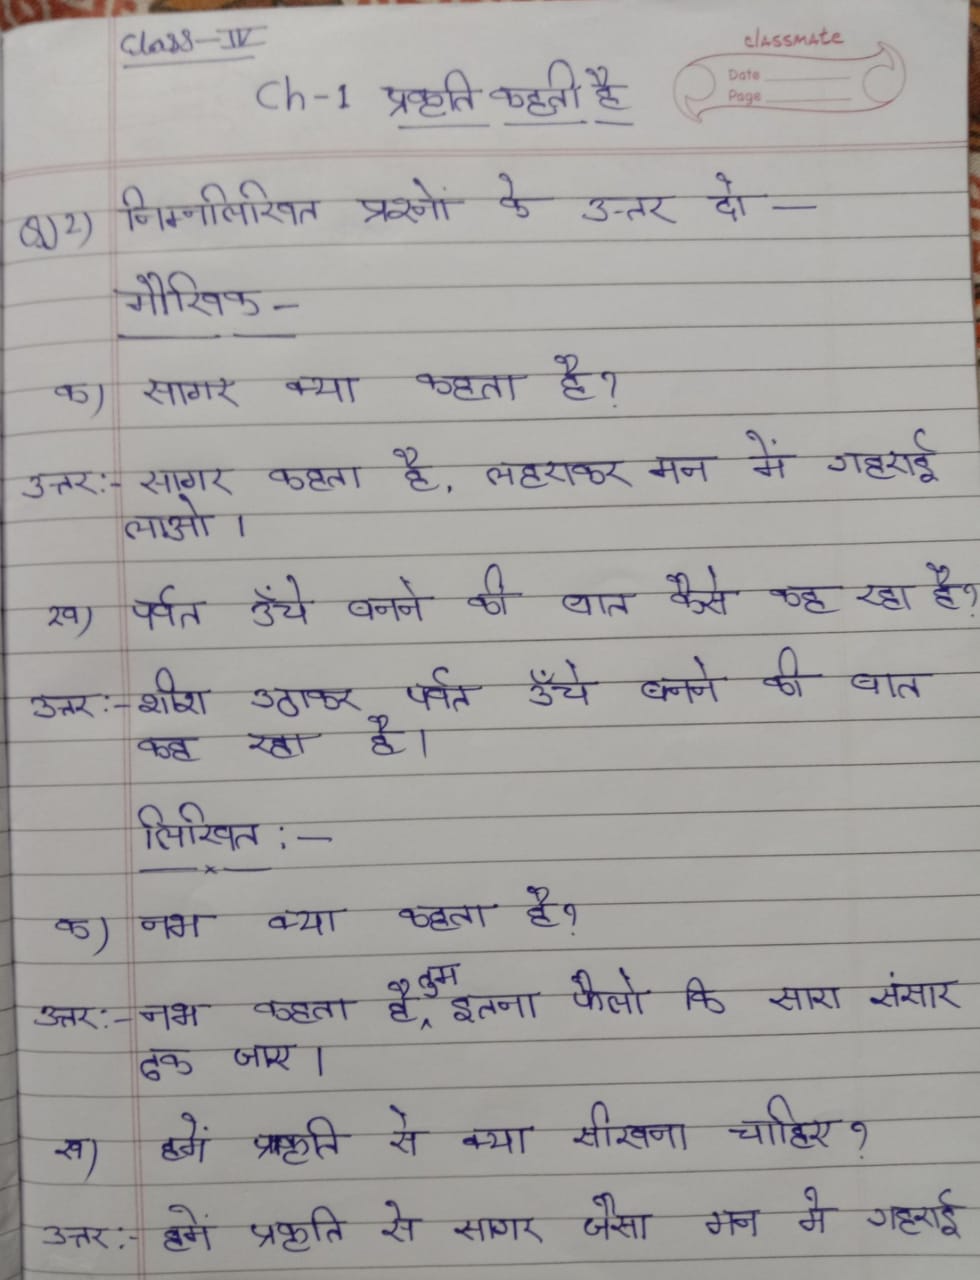 Class-IV
classmate
Date
Page
Ch-1 प्रकृति कहती है
Q)2) निम्नलिखित प्रश्नों के उत्तर दो —
मौखिक -
क) सागर क्या कहता है?
उत्तर:- सागर कहता है, लहराकर मन में गहराई
लाओ ।
ख) पर्वत ऊँचे बनने की बात कैसे कह रहा है?
उत्तर:- शीश उठाकर पर्वत ऊँचे बनने की बात
कह रहा है।
लिखित :-
क) नभ क्या कहता है?
उत्तर:- नभ कहता है, तुम इतना फैलो कि सारा संसार
ढक जाए ।
ख) हमें प्रकृति से क्या सीखना चाहिए ?
उत्तर:- हमें प्रकृति से सागर जैसा मन मे गहराई